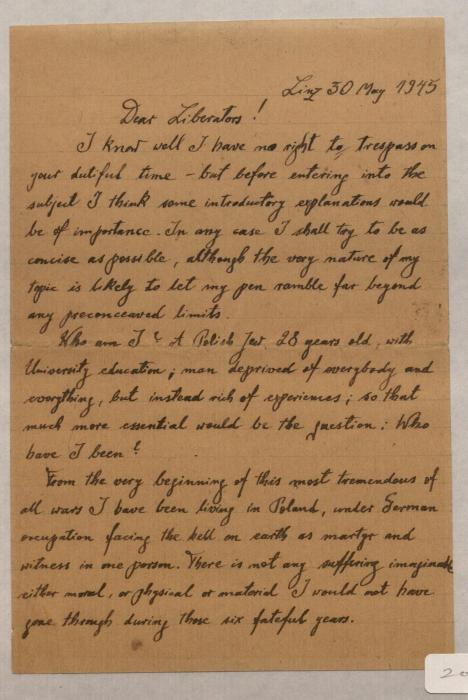 Linz 30 May 1945
Dear Liberators!
I know well I have no right to trespass on
your dutiful time - but before entering into the
subject I think some introductory explanations would
be of importance. In any case I shall try to be as
concise as possible, although the very nature of my
topic is likely to let my pen ramble far beyond
any preconceaved limits.
Who am I? A Polish Jew, 28 years old, with
University education; man deprived of everybody and
everything, but instead rich of experiences; so that
much more essential would be the question: Who
have I been?
From the very beginning of this most tremendous of
all wars I have been living in Poland, under German
occupation facing the hell on earth as martyr and
witness in one person. There is not any suffering imaginable
either moral, or physical or material I would not have
gone through during those six fateful years.